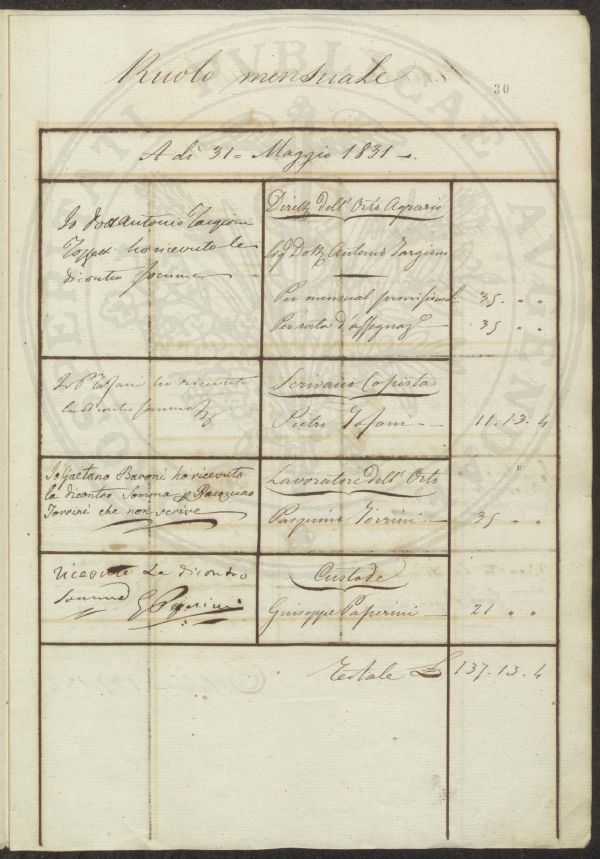 Ruolo mensuale
30
A dì 31 = Maggio 1831 -.
Io Dott Antonio Targioni
Tozzett ho ricevuto la
dicontro somma
Dirett dell' Orto Agrario
Sig Dott Antonio Targioni
Per mensual provvisione 35 . " "
Per rata d'assegnaz 35 " "
Io P Tofani ho ricevuto
la dicontro somma
Scrivano Copista
Pietro Tofani 11. 13. 4
Io Gaetano Baroni ho ricevuto
la dicontro Somma p Pasquino
Torrini che non scrive
Lavoratore dell' Orto
Pasquino Torrini 35 " "
ricevuto la dicontro
somma G Paperini
Custode
Giuseppe Paperini 21 " "
Totale £ 137. 13. 4
PUBLICAE
AUGENDAE